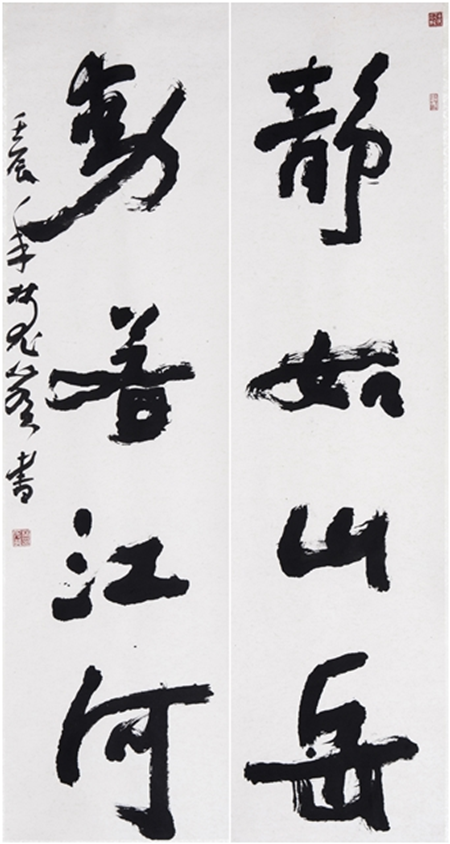 静如山岳
動若江河
壬辰年 书